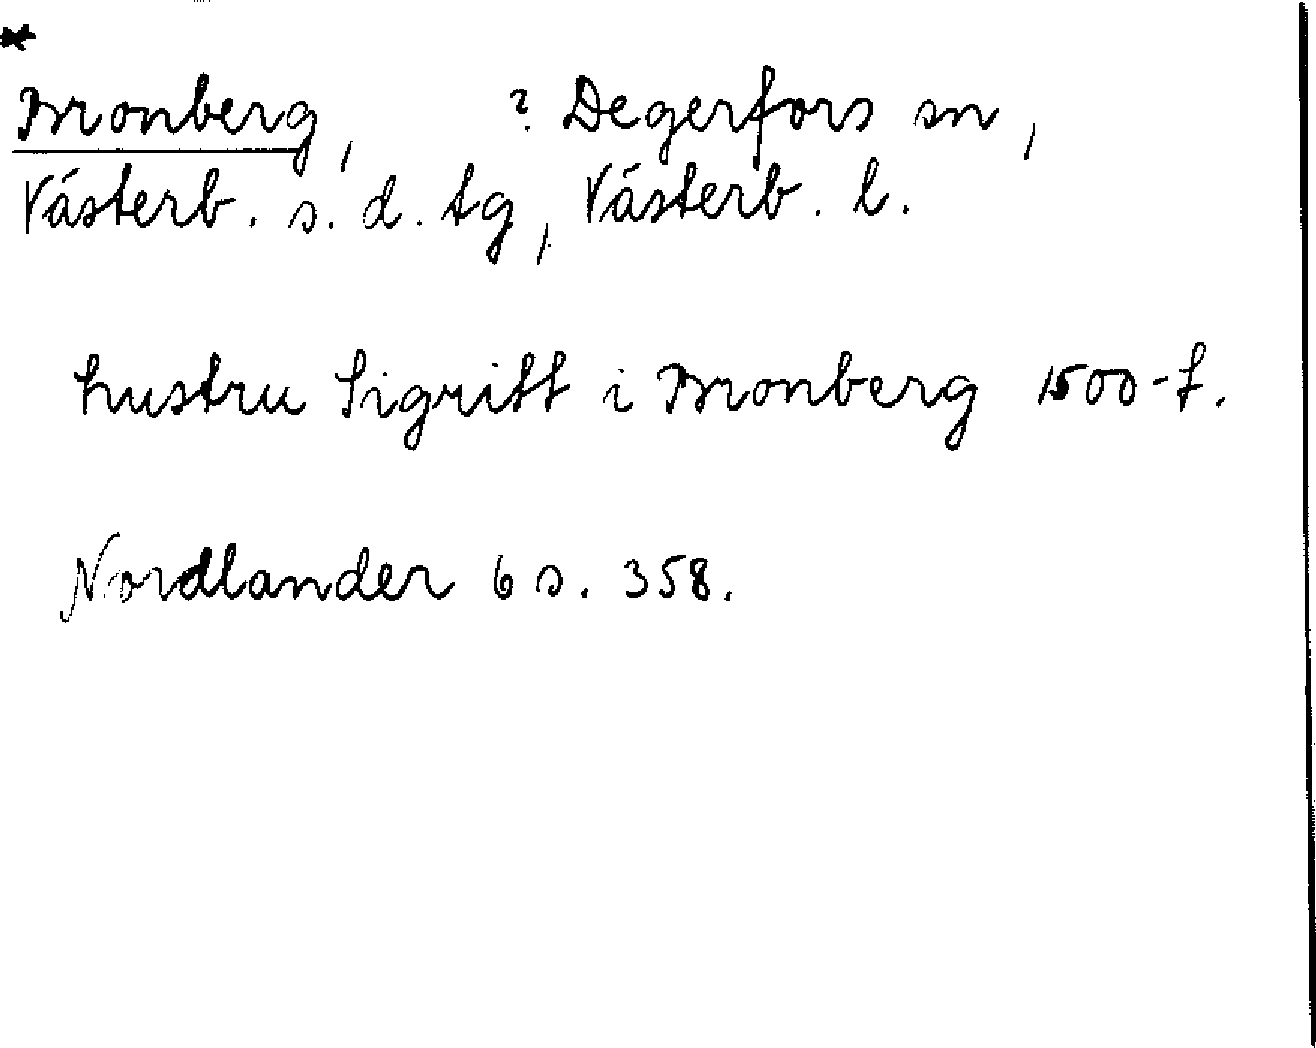 *
Bronberg, ? Degerfors sn,
Västerb. s. d. tg, Västerb. l.
hustru Sigritt i Bronberg 1500-t.
Nordlander 6 s. 358.